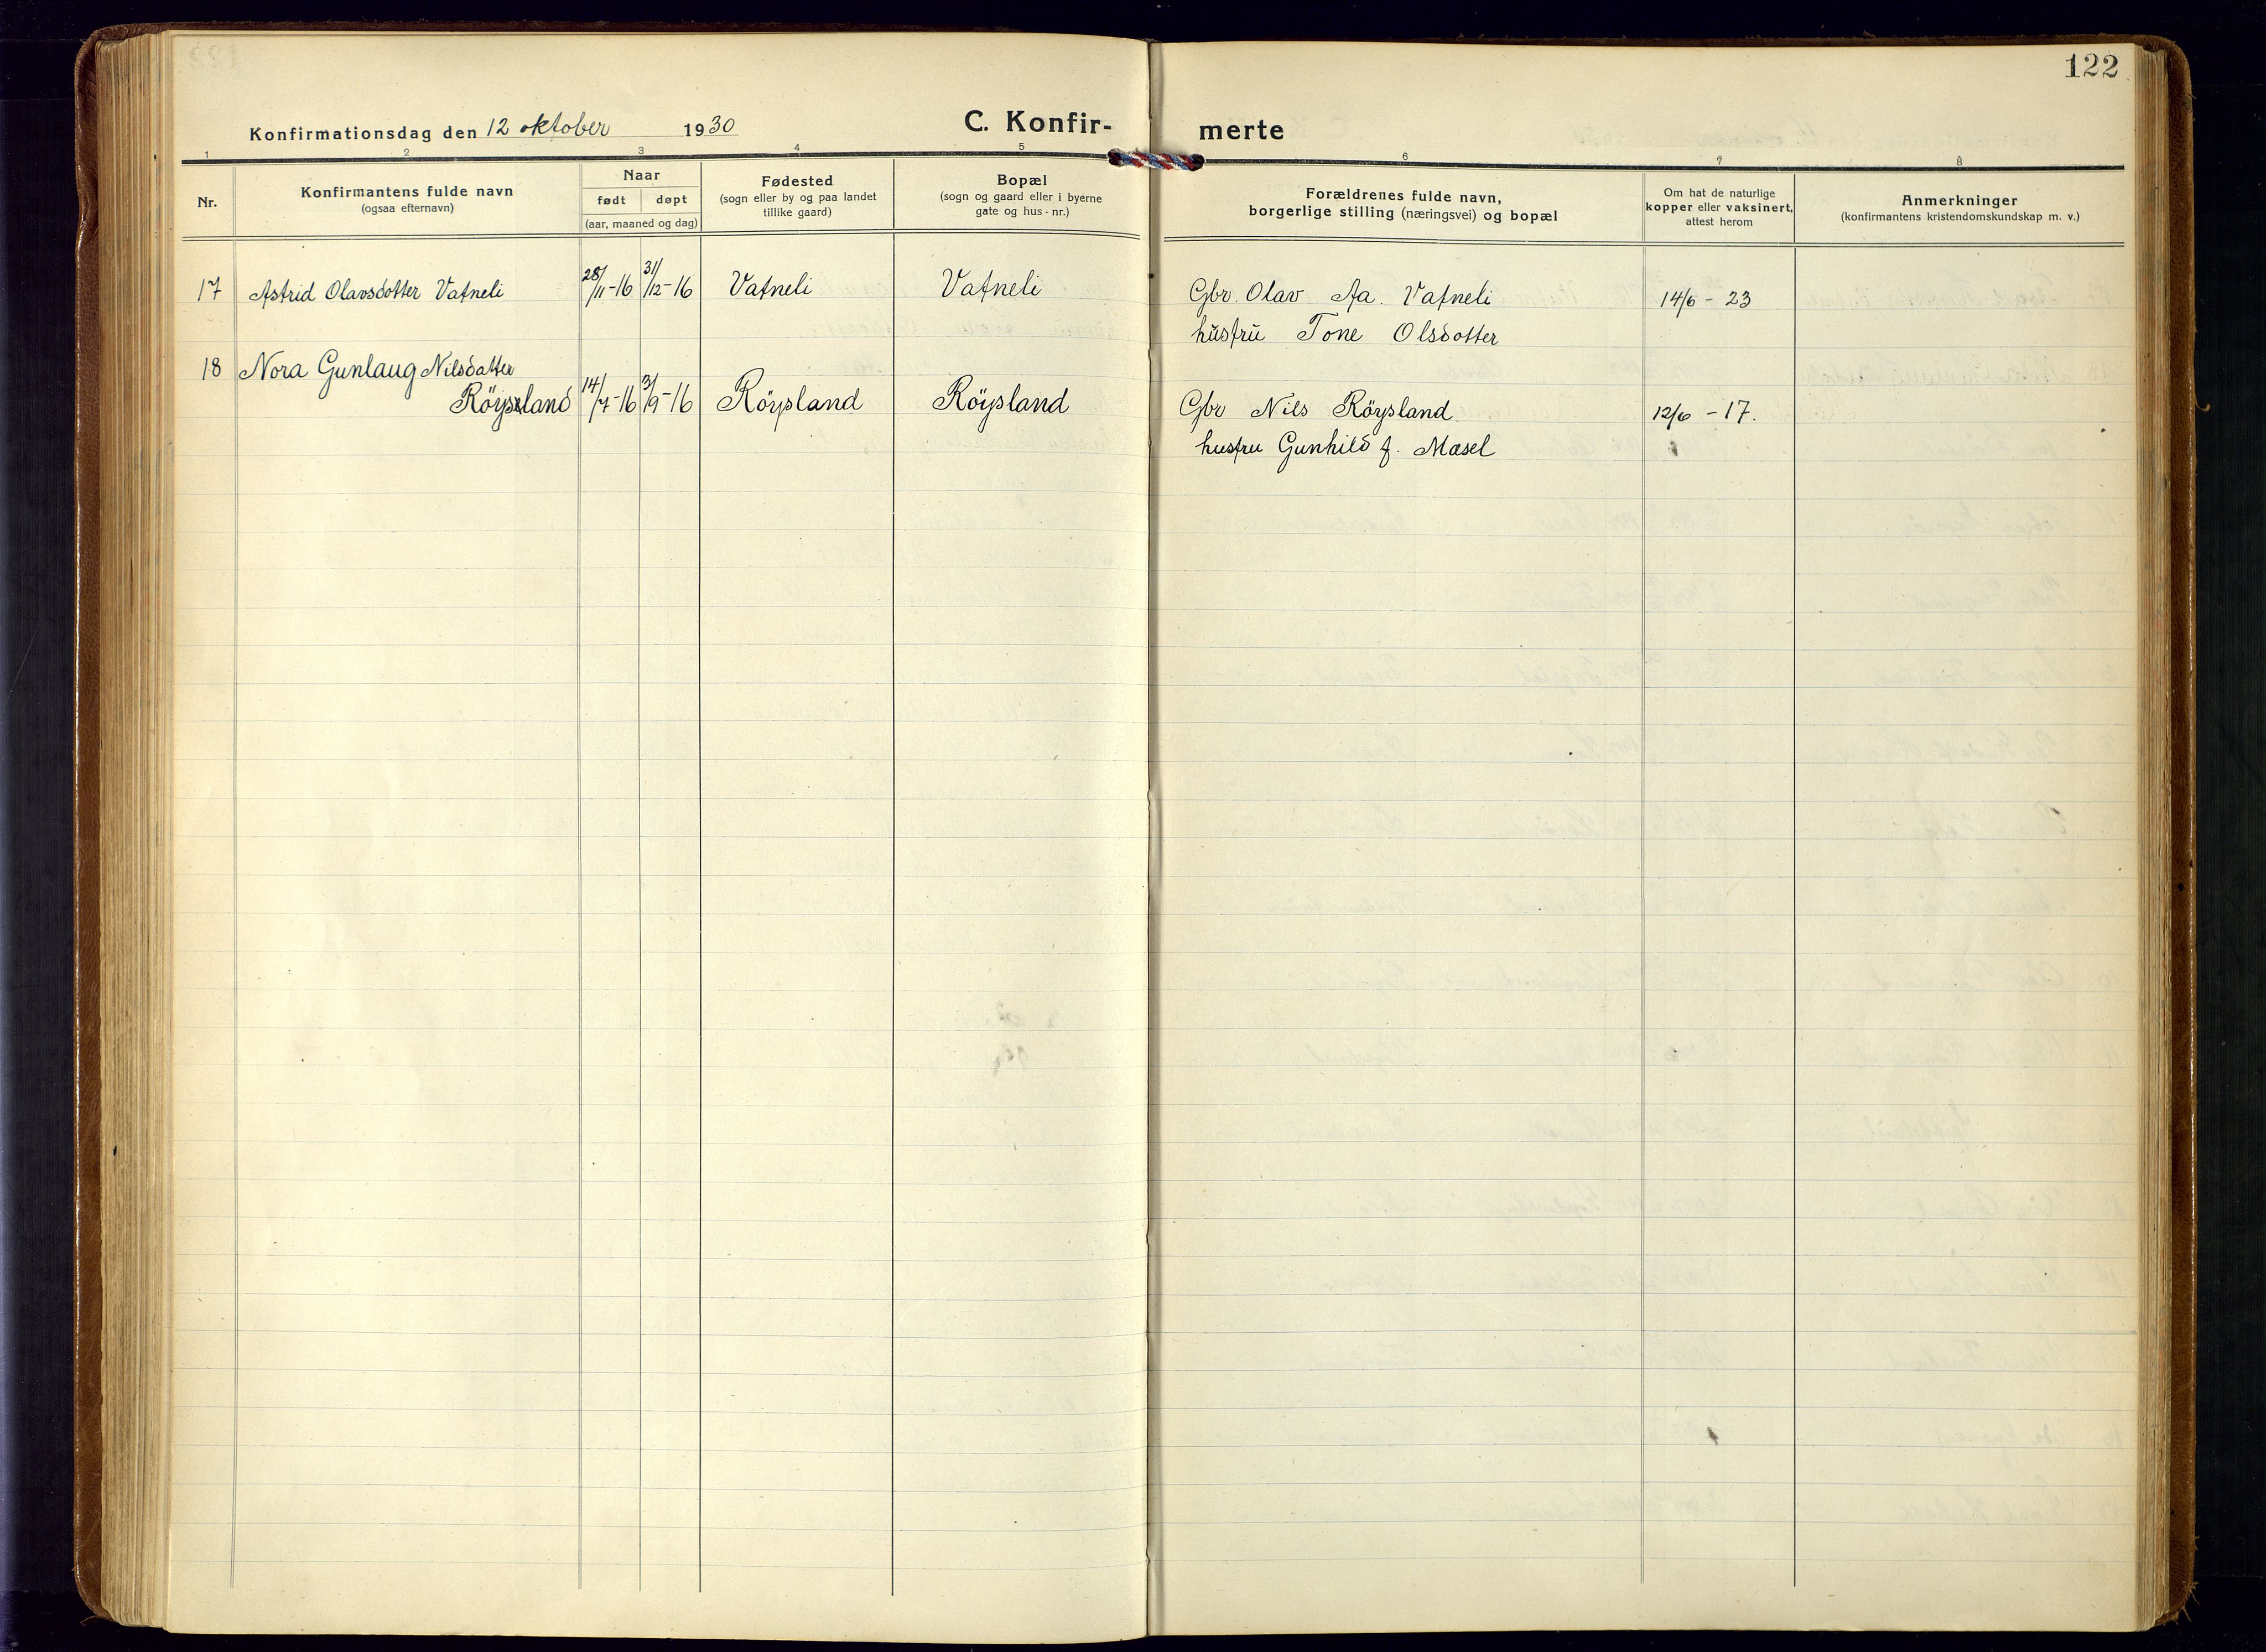 122
Konfirmationsdag den 12 oktober 1930
C. Konfir-
merte
1 2 3 4 5 6 7 8
Nr.
Konfirmantens fulde navn
(ogsaa efternavn)
Naar
født døpt
(aar, maaned og dag)
Fødested
(sogn eller by og paa landet
tillike gaard)
Bopæl
(sogn og gaard eller i byerne
gate og hus-nr.)
Forældrenes fulde navn,
borgerlige stilling (næringsvei) og bopæl
Om hat de naturlige
kopper eller vaksinert,
attest herom
Anmerkninger
(konfirmantens kristendomskundskap m. v.)
17 Astrid Olavsdotter Vatneli 28/11-16 31/12-16 Vatneli Vatneli Gbr. Olav Aa. Vatneli 14/6 - 23
hustru Tone Olsdotter
18 Nora Gunlaug Nilsdatter
Röysland 14/7-16 3/9-16 Röysland Röysland Gbr Nils Röysland 12/6 - 17.
hustru Gunhild f. Mæsel